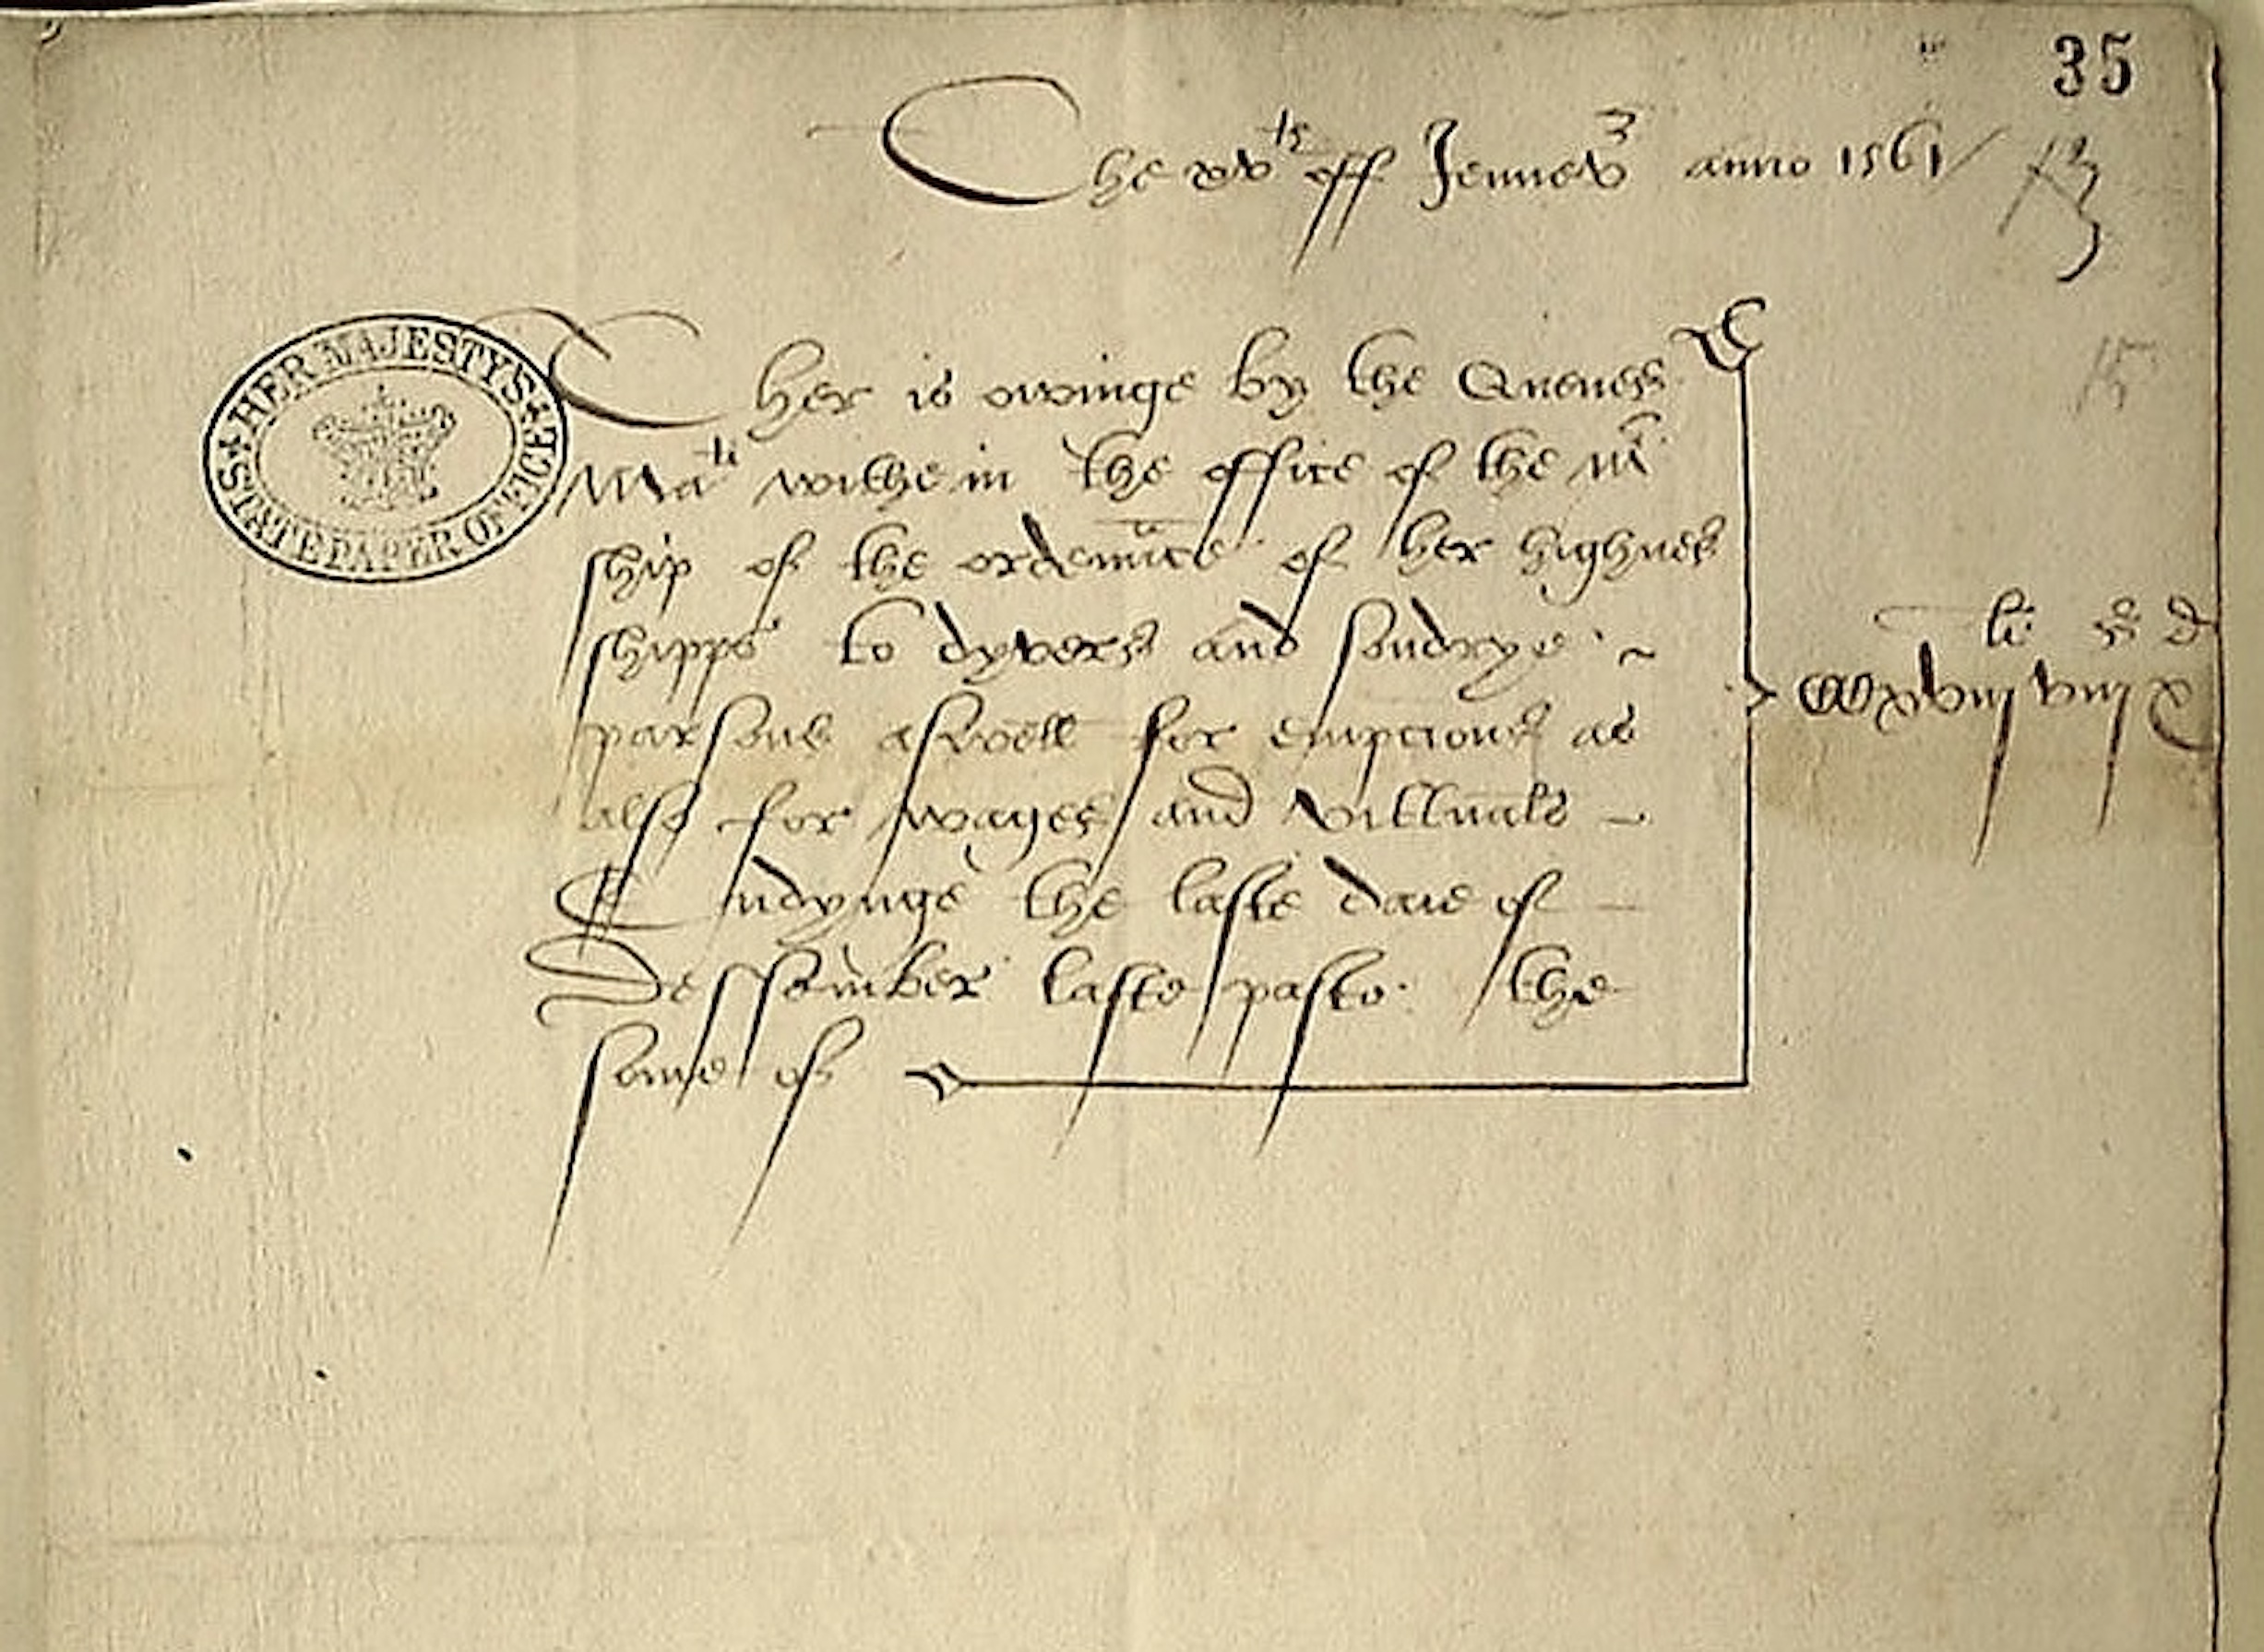 35
The xvth off Jennev3 anno 1561
HER MAJESTYS STATE PAPER OFFICE
Ther is owinge by the Quenes
Matie withe in the office of the mr
ship of the ordennce of her highnes
shipps to dyvers and sondrye
parsons aswell for empcions as
also for wages and vittualls
Endynge the laste daie of
Dessember laste paste the
some of
li s d
xviij viij x
15